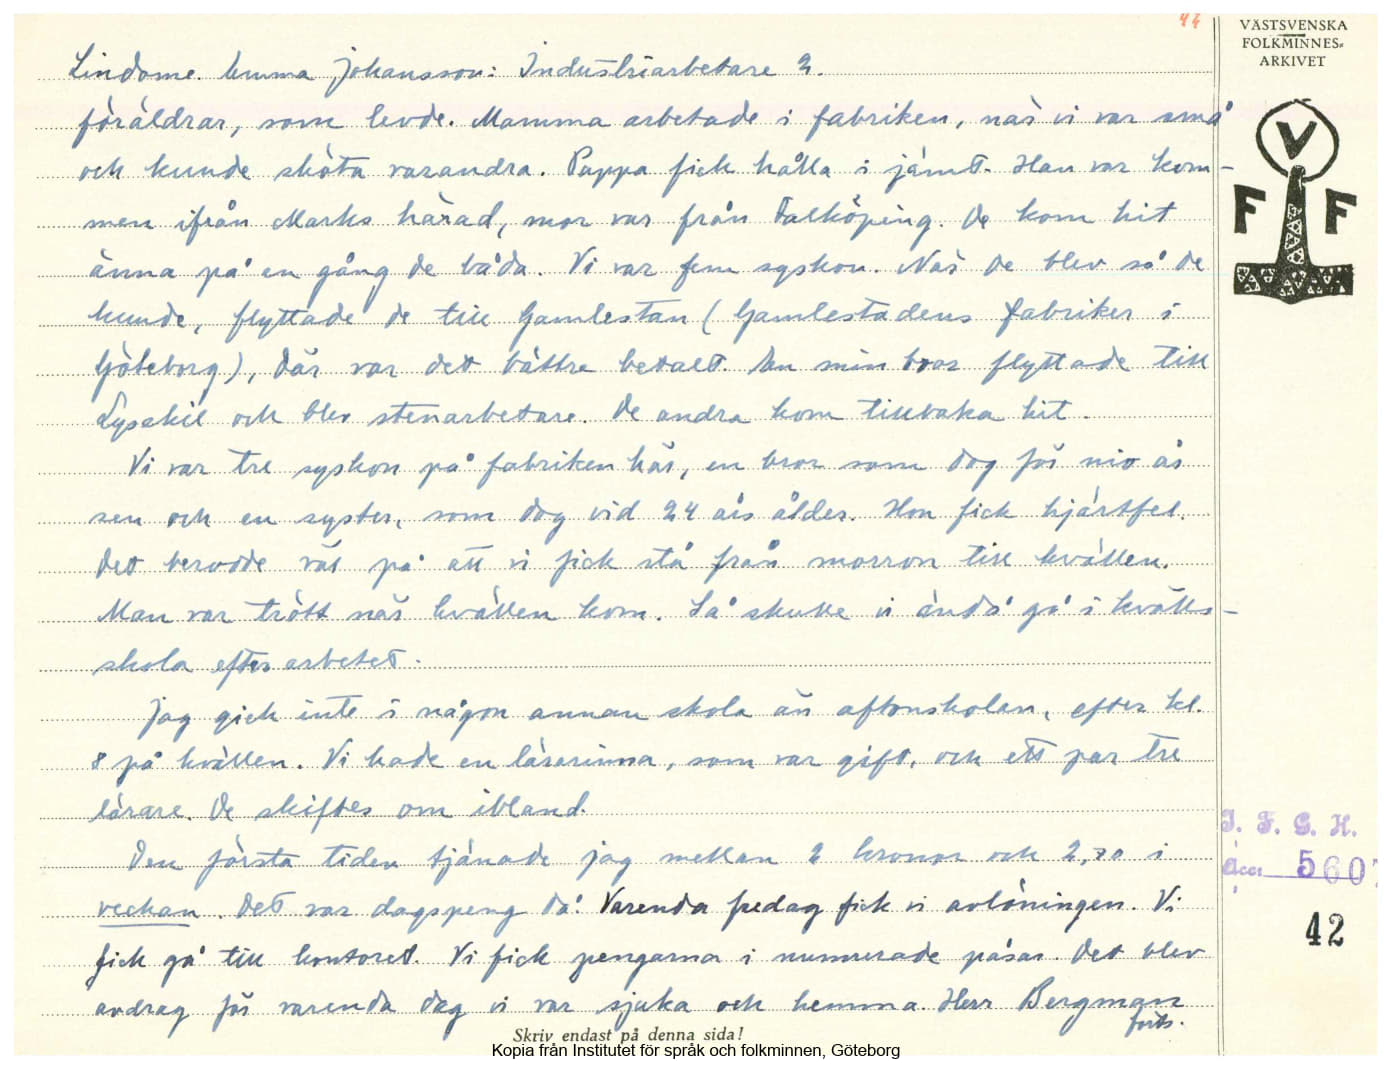 44
VÄSTSVENSKA
FOLKMINNES=
ARKIVET
V
F F
Lindome. Emma Johansson: Industriarbetare 2.
föräldrar, som levde. Mamma arbetade i fabriken, när vi var små
och kunde sköta varandra. Pappa fick hålla i jämt. Han var kom-
men ifrån Marks härad, mor var från Falköping. De kom hit
änna på en gång de båda. Vi var fem syskon. När de blev så de
kunde, flyttade de till Gamlestan (Gamlestadens fabriker i
Göteborg), där var det bättre betalt. En min bror flyttade till
Lysekil och blev stenarbetare. De andra kom tillbaka hit.
Vi var tre syskon på fabriken här, en bror som dog för nio år
sen och en syster, som dog vid 24 års ålder. Hon fick hjärtfel.
Det berodde väl på att vi fick stå från morron till kvällen.
Man var trött när kvällen kom. Så skulle vi ändå gå i kvälls-
skola efter arbetet.
Jag gick inte i någon annan skola än aftonskolan, efter kl.
8 på kvällen. Vi hade en lärarinna, som var gift, och ett par tre
lärare. De skiftes om ibland.
Den första tiden tjänade jag mellan 2 kronor och 2,80 i
veckan. Det var dagspeng då. Varenda fredag fick vi avlöningen. Vi
fick gå till kontoret. Vi fick pengarna i numrerade påsar. Det blev
avdrag för varenda dag vi var sjuka och hemma. Herr Bergman
forts.
I. F. G. H.
Acc: 5607
42
Skriv endast på denna sida!
Kopia från Institutet för språk och folkminnen, Göteborg